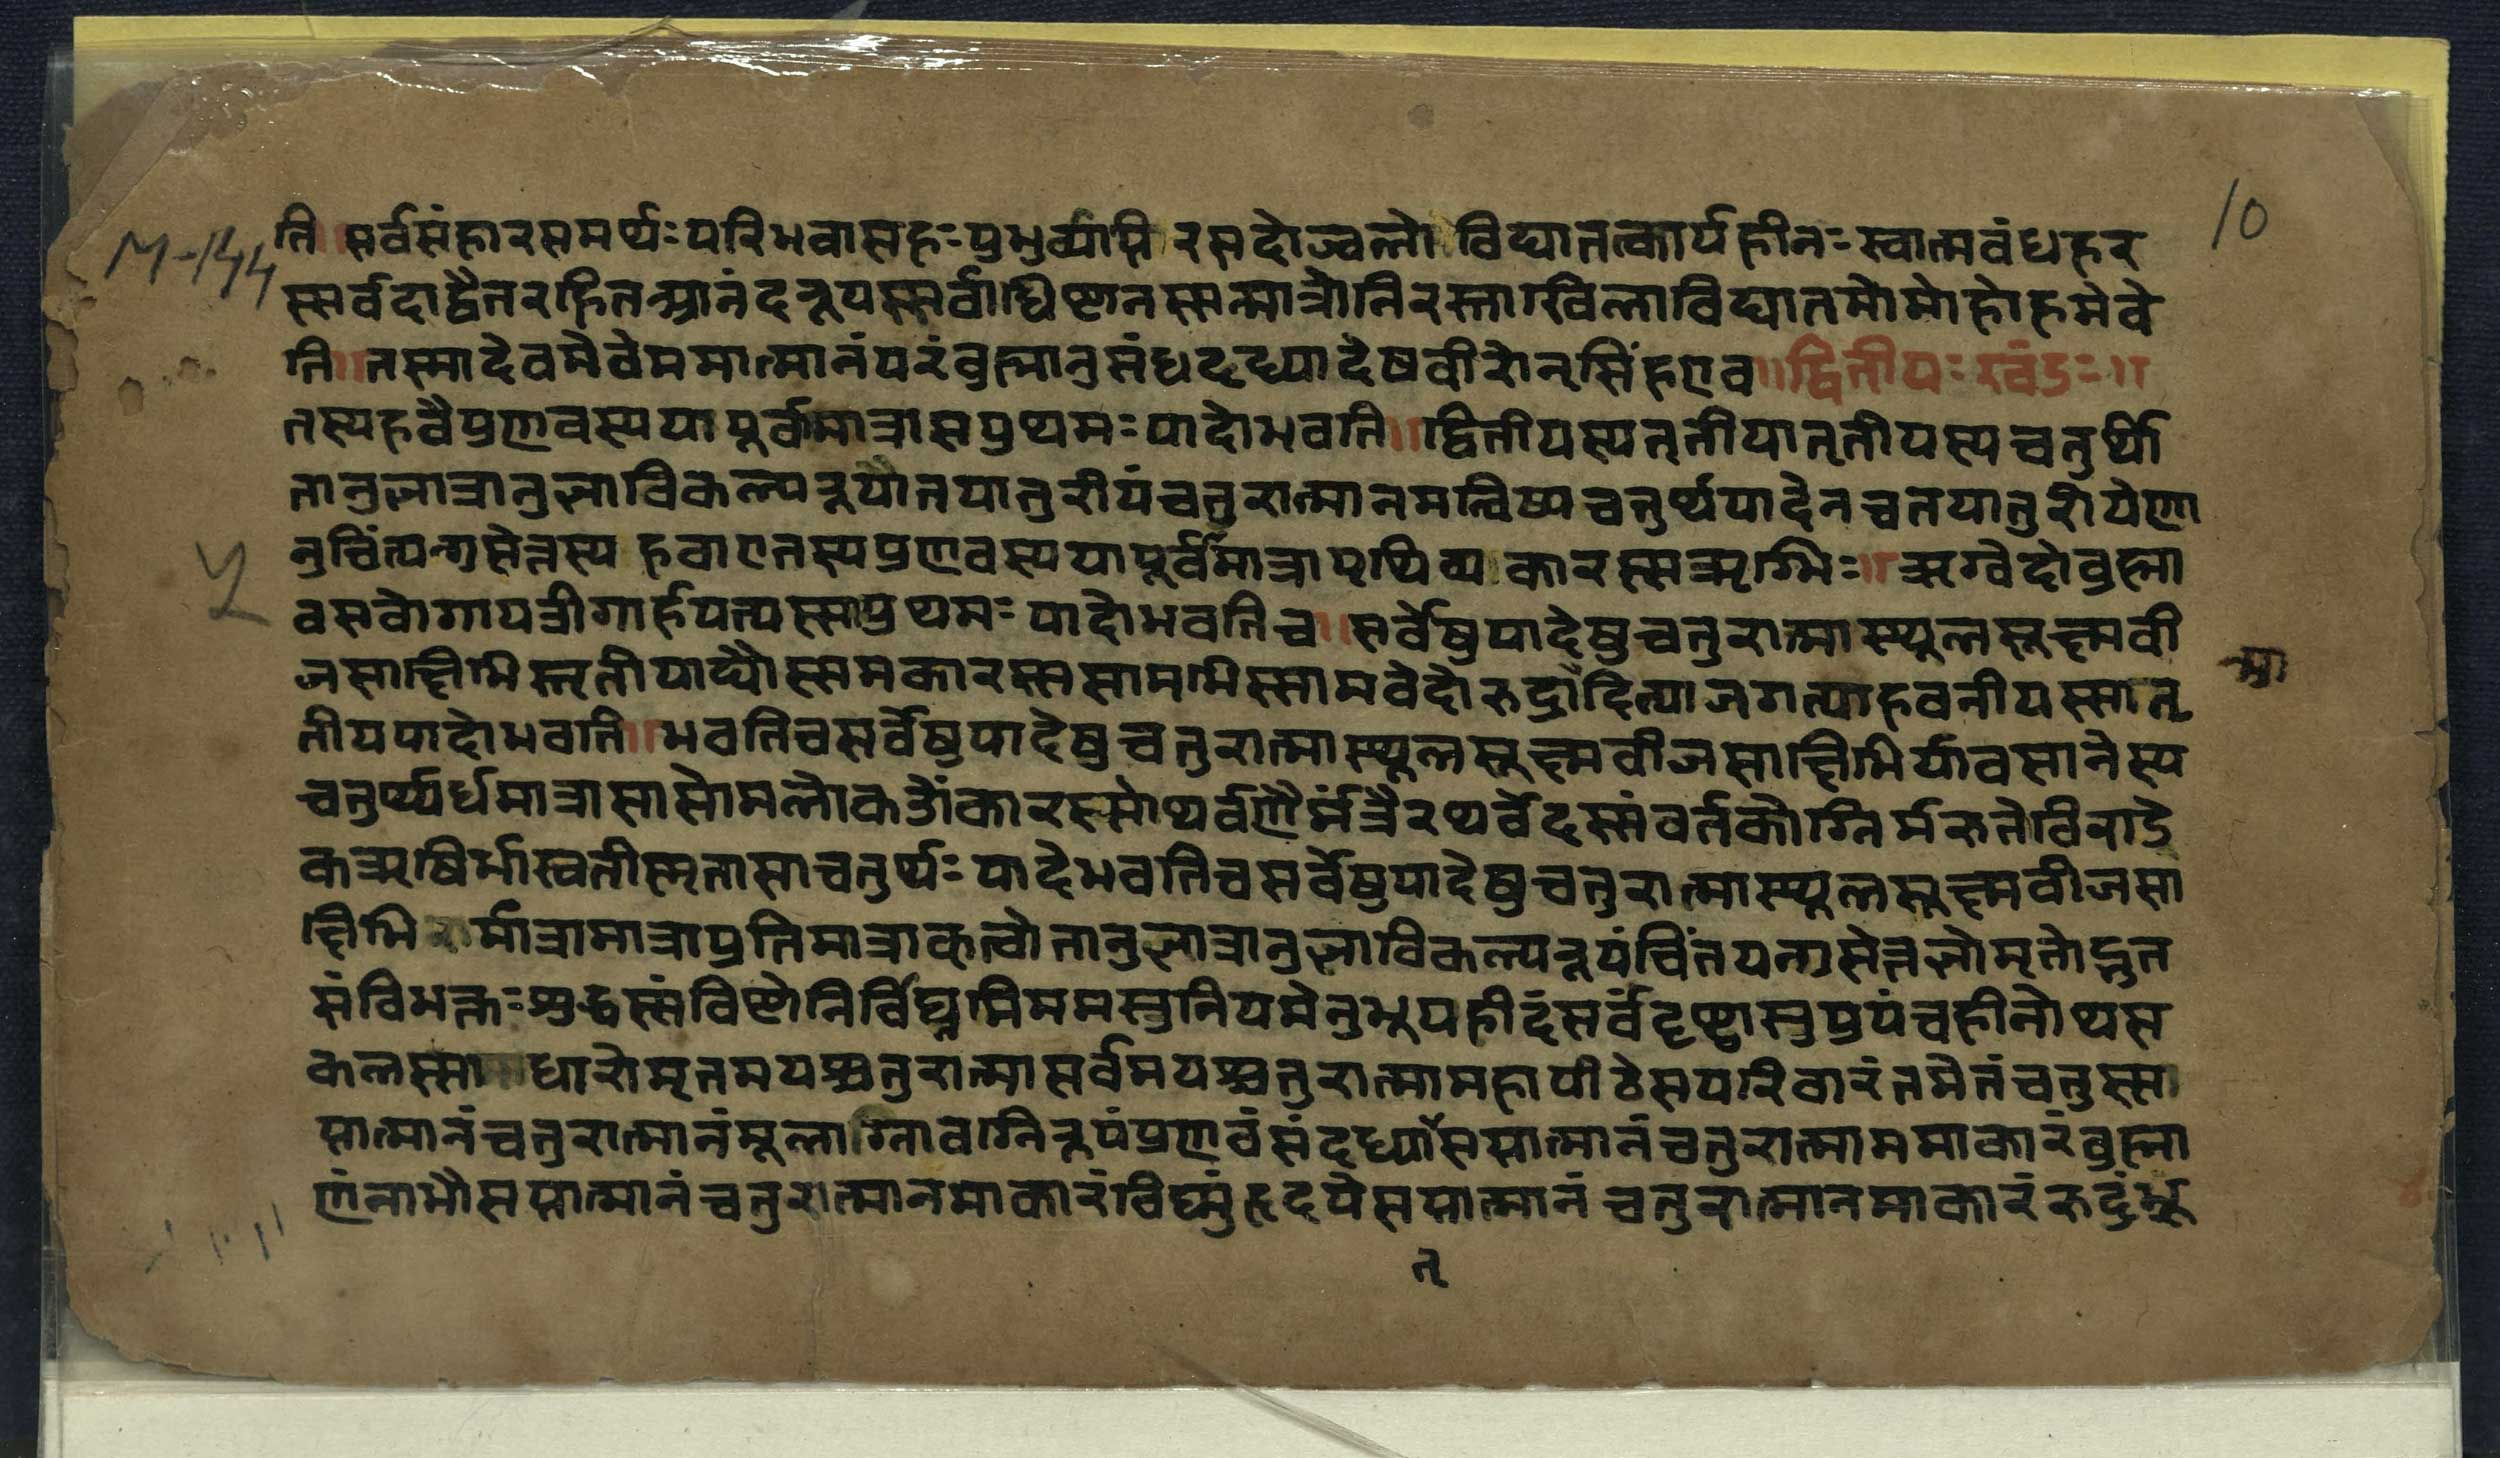 10
M-144
ति॥सर्वसंहारसमर्थः परिभवासहः प्रभुर्व्याप्ति रसदोज्वलो विद्यातत्कार्यहीनः स्वात्मवंधहर
स्सर्वदाद्वैतरहितआनंदरूपस्सर्वाधिष्ठानस्सन्मात्रोनिरस्ताखिलाविद्यातमोमोहोहमेवे
ति॥तस्मादेवमेवेममात्मानंपरंब्रह्मानुसंधदृध्यादेषवीरोनृसिंहएव॥द्वितीयः खंडः॥
तस्यहवैप्रणवस्ययापूर्वामात्रासप्रथमः पादोभवति॥द्वितीयस्यतृतीयातृतीयस्यचतुर्थी
तानुज्ञात्रानुज्ञाविकल्परूपातयातुरीयंचतुरात्मानमन्विष्यचतुर्थपादेनचतयातुरीयेणा
नुचिंत्यन्ग्रसेत्तस्य हवाएतस्यप्रणवस्ययापूर्वामात्रापृथिव्य कारस्सऋग्भिः॥ऋग्वेदोब्रह्मा
वसवोगायत्रीगार्हपत्यस्साप्रथमः पादोभवतिच॥सर्वेषुपादेषुचतुरात्मास्थूलसूक्ष्मवी
जसाक्षिभिस्तृतीयाद्यौस्समकारस्ससामभिस्सामवेदोरुद्रादित्याजगत्याहवनीयस्सातृ
तीयपादोभवति॥भवतिचसर्वेषुपादेषुचतुरात्मास्थूलसूक्ष्मवीजसाक्षिभिर्यावसानेस्य
चतुर्थ्यर्धमात्रासासोमलोकओंकारस्सोथर्वणैर्मंत्रैरथर्वेदस्संवर्तकोग्निर्मरुतोविराडे
कऋषिर्भास्वतीस्मृतासाचतुर्थः पादेभवतिचसर्वेषुपादेषुचतुरात्मास्थूलसूक्ष्मवीजसा
क्षिभि र्मात्रामात्राप्रतिमात्राकृत्वोतानुज्ञात्रानुज्ञाविकल्परूपंचिंतयन्ग्रसेत्तज्ञोमृतोहुत
संविभक्तः शुद्धस्संविष्टोनिर्विघ्नमिममसुनियमेनुभूयहीदंसर्वंदृष्ट्वासुप्रपंचहीनोथस
कलस्सा धारोमृतमयश्चतुरात्मासर्वमयश्चतुरात्मामहापीठेसपरिवारंतमेतंचतुस्सा
प्तात्मानंचतुरात्मानंमूलाग्नावग्निरूपंप्रणवंसंदध्यात्सप्तात्मानंचतुरात्माममाकारंब्रह्मा
णंनाभौसप्तात्मानंचतुरात्मानमाकारंविष्णुंहृदयेसप्तात्मानंचतुरात्मानमाकारंरुद्रंभ्रू
तृ